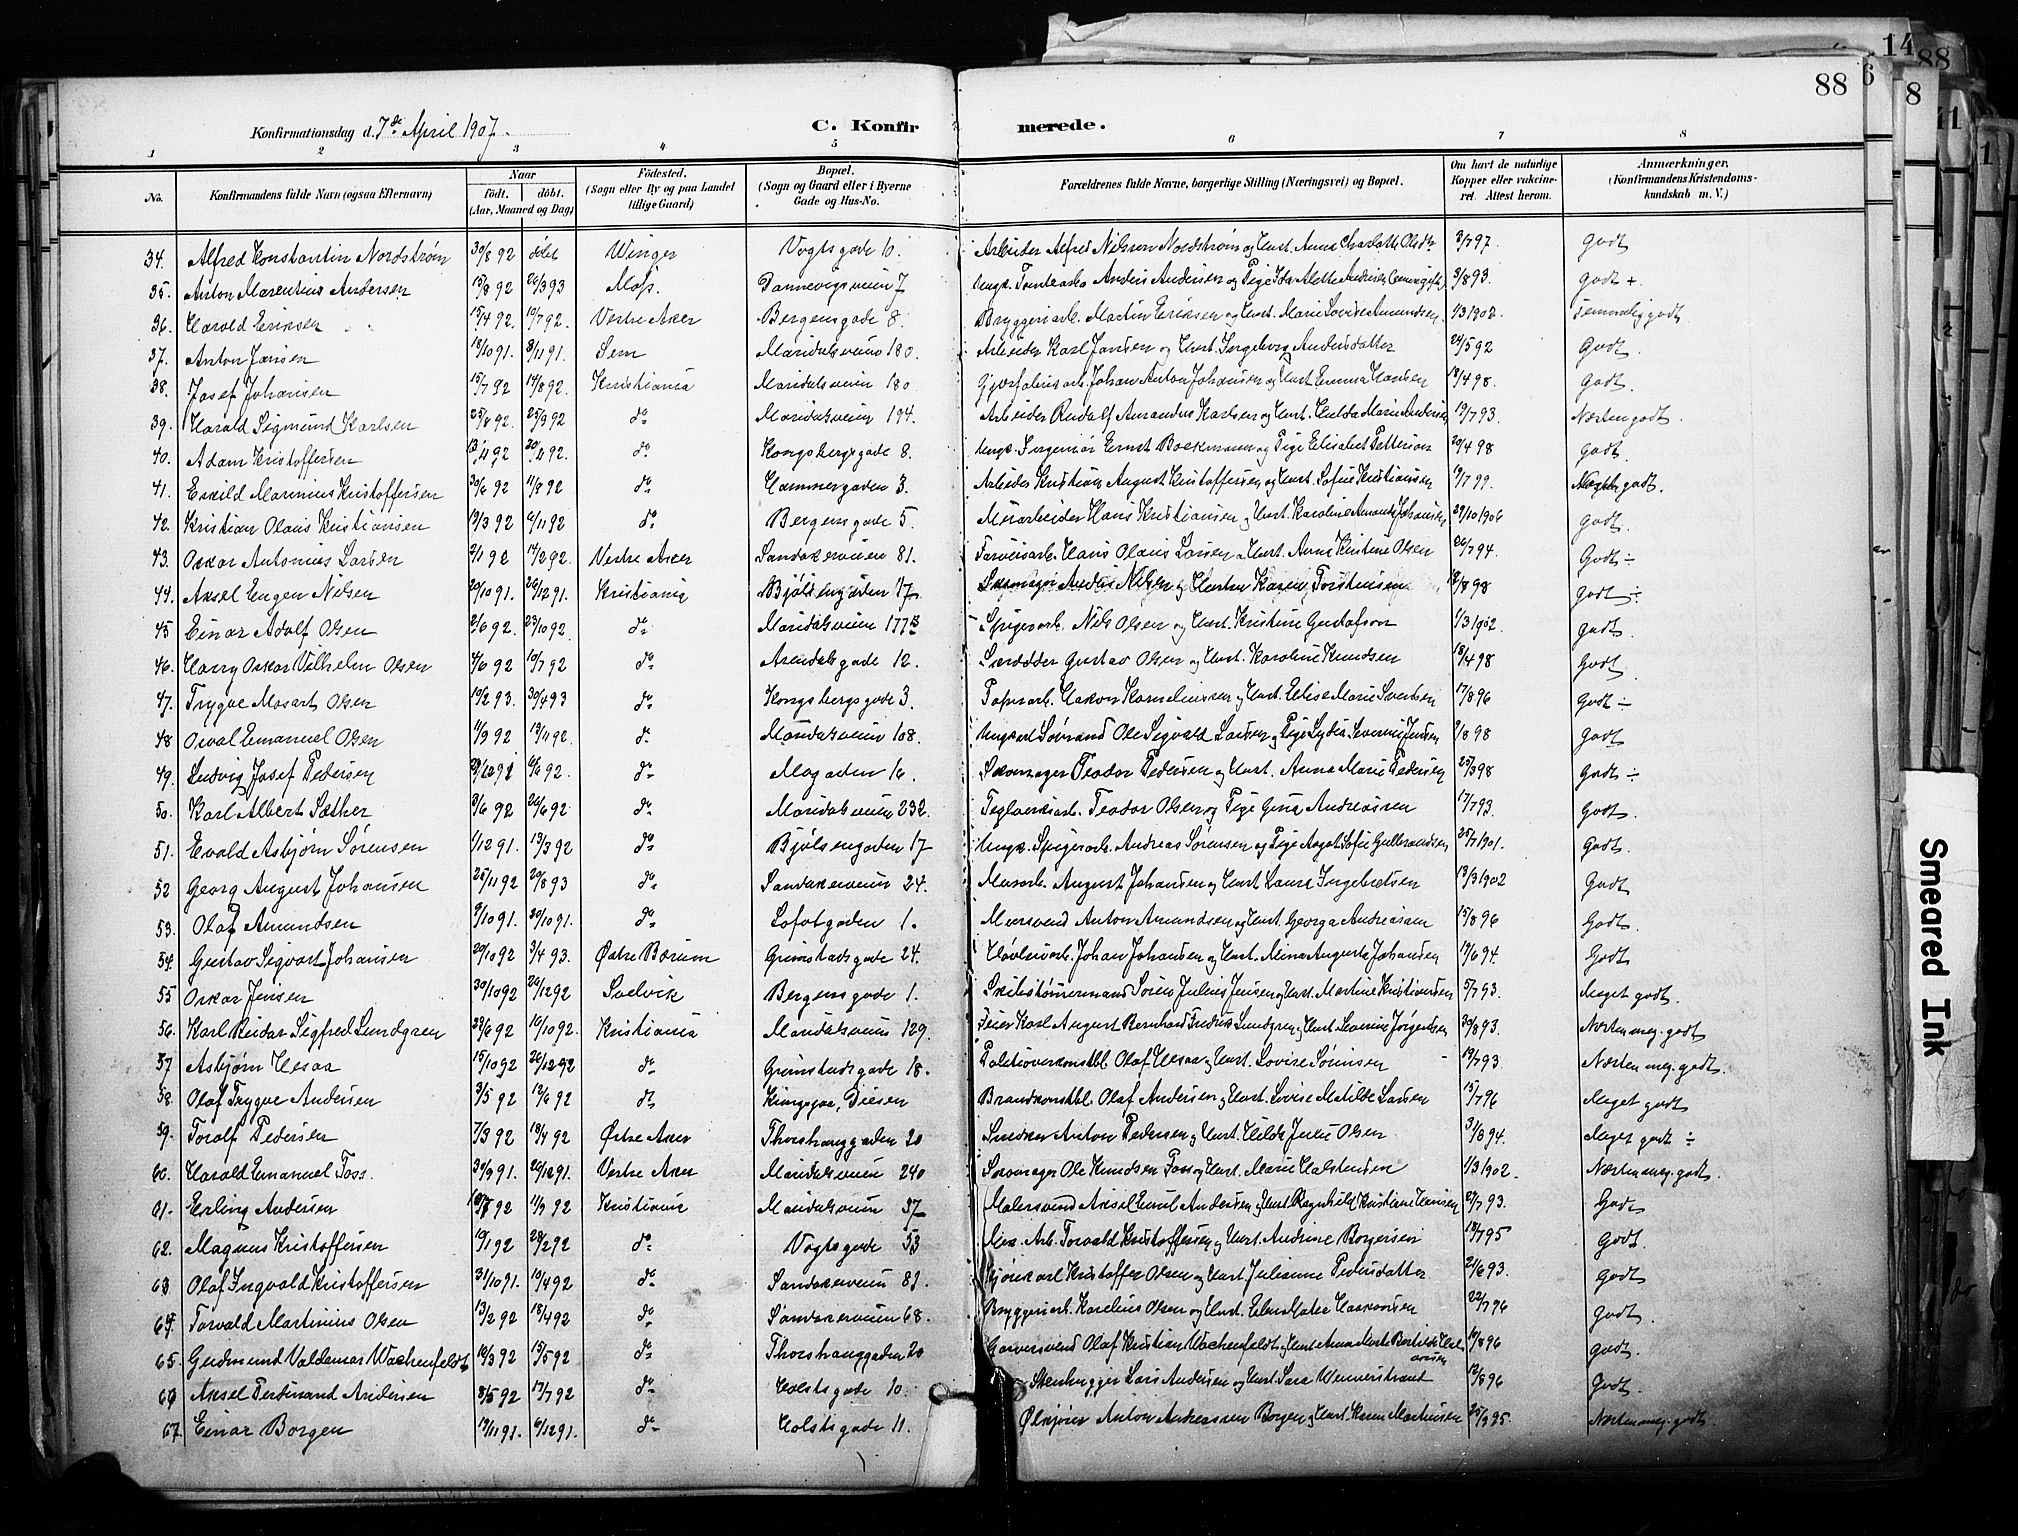 14
88
6
8
11
1
88
Konfirmationsdag d. 7de April 1907.
C. Konfir merede.
1 2 3 4 5 6 7 8
No.
Konfirmandens fulde Navn (ogsaa Efternavn)
Naar
födt. döbt.
(Aar, Maaned og Dag)
Födested.
(Sogn eller By og paa Landet
tillige Gaard)
Bopæl.
(Sogn og Gaard eller i Byerne
Gade og Hus-No.
Forældrenes fulde Navne, borgerlige Stilling (Næringsvei) og Bopæl.
Om havt de naturlige
Kopper eller vakcine-
ret. Attest herom.
Anmærkninger.
(Konfirmandens Kristendoms-
kundskab m. V.)
34. Alfred Konstantin Nordstrøm 30/8 92 döbt Winger Vogtsgade 10. Arbeider Alfred Nilsen Nordstrøm og Hust. Anna Charlotte Olsdtr 3/7 97. Godt
35. Anton Marentius Andersen 15/8 92 26/3 93 Moss. Dannevigsveien 7 Anders Andersen og Pige 3/8 93. Godt +
36. Harald Eriksen 15/4 92. 10/7 92. Vestre Aker Bergensgade 8. Bryggeriarb. Martin Eriksen og Hust. Marie Lovise Amundsen. 1/3 1902. Temmelig godt
37. Anton Jansen 18/10 91. 8/11 91. Sem Maridalsveien 180. Arbeider Karl Jansen og Hust. Ingeborg Andersdatter 24/5 92 Godt.
38. Josef Johansen 15/7 92 14/8 92. Kristiania Maridalsveien 180. Johan Anton Johansen og Hust Emma Hansen 18/4 98. Godt.
39. Harald Sigmund Karlsen 25/8 92. 25/9 92 do Maridalsveien 194. Arbeider Rudolf Amandus Karlsen og Hust. Hulda Marie Andersen 19/7 93. Næsten godt.
40. Adam Kristoffersen 13/4 92 do Kongsbergsgade 8. Ungk. Ingeniør Ernst Boekmann og Pige Elisabet Petterson 20/4 98 godt.
41. Eskild Marinius Kristoffersen 30/6 92 11/8 92 do Hammergaden 3. Arbeider Kristian August Kristoffersen og Hust. Sofie Kristiansen 19/7 99. godt.
42. Kristian Olaus Kristiansen 13/3 92 6/11 92 do Bergensgade 5. Hans Kristiansen og Hust. Karoline Amanda Johansen 29/10 1906 godt.
43. Oskar Antonius Larsen 2/1 92 14/2 92. Vestre Aker Sandakerveien 81. Hans Olaus Larsen Hust. Anne Kristine Olsen 26/7 94. Godt ÷
44. Aksel Eugen Nilsen 20/10 91. 26/12 91. Kristiania Bjølsengaden 17. Skomager Anders Nilsen og Hustru Karen Torstensen 12/8 98 Godt ÷
45 Einar Adolf Olsen 2/6 92. 23/10 92. do Maridalsveien 177 B Spigerarb. Nils Olsen og Hust. Kristine Gustafson 1/3 1902. godt.
46. Harry Oskar Vilhelm Olsen 4/6 92 10/7 92 do Arendalsgade 12. Skrædder Gustav Olsen og Hust. Karoline Knudsen 18/4 98 godt.
47. Trygve Mosart Olsen 19/2 93. 30/4 93 do Kongsbergsgade 3. Hakon Korneliussen og Hust. Elise Marie Svendsen 17/8 96 Godt ÷
48 Osval Emanuel Olsen 11/9 92 13/11 92. do Maridalsveien 108. Ole Sigvald Larsen og Pige Lydia Severine Jensen 9/8 98 Godt
49. Ludvig Josef Pedersen 6/6 92. do Mogaden 16. Skomager Teodor Pedersen og Hust. Anna Marie Pedersen 25/3 98 godt ÷
50. Karl Albert Sæther 3/6 92 26/6 92 do Maridalsveien 232. Teglverksarb. Teodor Olsen og Pige Gina Andreassen 17/7 93. Godt.
51. Evald Asbjørn Sørensen 1/12 91. 13/3 92 do Bjølsengaden 17 Ungk. Spigerarb. Andreas Sørensen og Pige Sofie Gulbrandsen 25/7 1901. Godt.
52 Georg August Johansen 25/11 92 20/8 93 do Sandakerveien 24. Murarb. August Johansen og Hust Laura Ingebretsen 13/3 1902 Godt
53. Olaf Amundsen 9/10 91. 30/10 91. do Lofotgaden 1. Murersvend Anton Amundsen og Hust. Georga Andreassen 15/8 96 Godt.
54. Gustav Sigvart Johansen 20/10 92 3/4 93. Østre Bærum Grimstadsgade 24. Høvleriarb. Johan Johansen og Hust. Mina Augusta Johansen 19/6 94. Godt
55 Oskar Jensen 30/10 92 26/12 92 Bergensgade 1. Skibstømmermand Søren Julius Jensen og Hust. Martine Kristiansen 5/7 93. Meget godt.
56. Karl Reidar Sigfred Lundgren 29/6 92 16/10 92. Kristiania Maridalsveien 129. Feier Karl August Bernhard Fredrik Lundgren og Hust Severine Jørgensen 30/8 93. Næsten meg. godt
57 Asbjørn Hesaa 15/10 92 26/12 92 do Grimstadsgade 18. Politioverkonstbl. Olaf Hesaa og Hust. Lovise Sørensen 19/7 93. Næsten meg. godt.
58. Olaf Trygve Andersen 3/5 92 12/6 92 do Kingsgaa, Diesen Brandkonstbl. Olaf Andersen og Hust. Lovise Matilde Larsen 15/7 96 Meget godt
59. Toralf Pedersen 7/3 92 18/4 92 Østre Aker Thorshauggaden 20 Snedker Anton Pedersen og Hust. Hilda Julie Olsen 31/8 94. Meget godt ÷
60. Harald Emanuel Foss. 30/9 91. 26/12 91. Vestre Aker Maridalsveien 240 Skomager Ole Knudsen Foss og Hust. Marie Halstensen 1/3 1902. Næsten meg. godt.
61. Erling Andersen 11/9 92 Kristiania Maridalsveien 37 Malersvend Aksel Emil Andersen og Hust Ragnhild Kristiane Hansen 27/7 93. Godt
62. Magnus Kristoffersen 19/1 92 28/2 92 do Vogtsgade 53 Arb. Torvald Kristoffersen og Hust. Andrine Borgersen 19/7 95 Godt.
63 Olaf Ingvald Kristoffersen 31/10 91. 10/4 92 do Sandakerveien 81. Kjørekarl Kristoffer Olsen og Hust Julianne Pedersdatter 21/6 93. Godt
64. Torvald Martinius Olsen 13/2 92 18/4 92 do Sandakerveien 68. Bryggeriarb. Karelius Olsen og Hust. 22/7 96 Godt.
65. Gudmund Valdemar Wachenfeldt 10/3 92 15/5 92 do Thorshauggaden 20 Garversvend Olaf Kristian Wachenfeldt og Hust 19/8 96 Godt.
66 Aksel Ferdinand Andersen 8/5 92 17/7 92 do Holstsgade 10. Stenhugger Lars Andersen og Hust. Sara Wennerstrand 12/8 96 Godt
67. Einar Borgen 19/11 91. 6/12 91. do Holstsgade 11. Anton Andreassen Borgen og Hust Karen Martinsen 25/9 95. Næsten meg. godt.
Smeared Ink